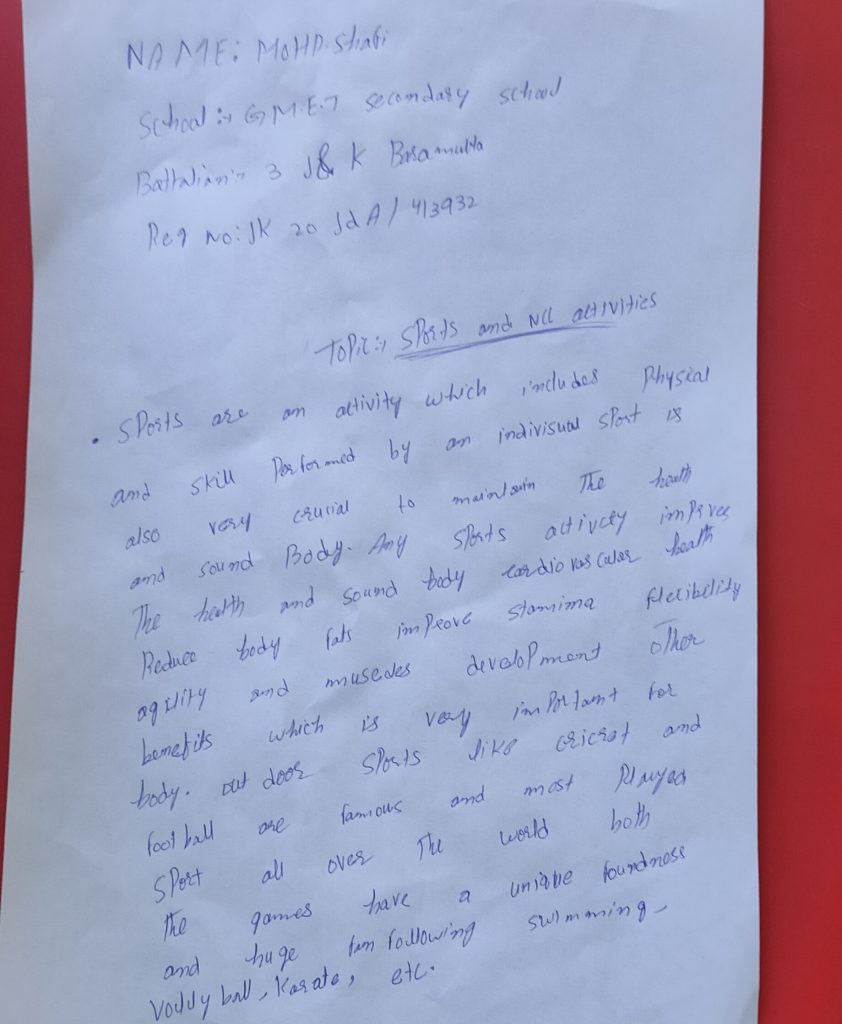 NAME: MOHD. Shafi
School :- G.M.E.T secondary school
Battalian :- 3 J&K Baramulla
Reg no: JK 20 JdA/413932
Topic :- Sports and NCC activities
• Sports are an activity which includes Physical
and skill Performed by an indivisual sport is
also very crucial to maintain The health
and sound Body. Any sports activity improves
The health and sound body cardiovascular health
Reduce body fats improve stamima flexibility
agility and muscles development other
benefits which is very important for
body. out door sports like cricret and
foot ball are famous and most Played
sport all over The world both
the games have a unique foundness
and huge fan following swimming -
Vollly ball, Karate, etc.